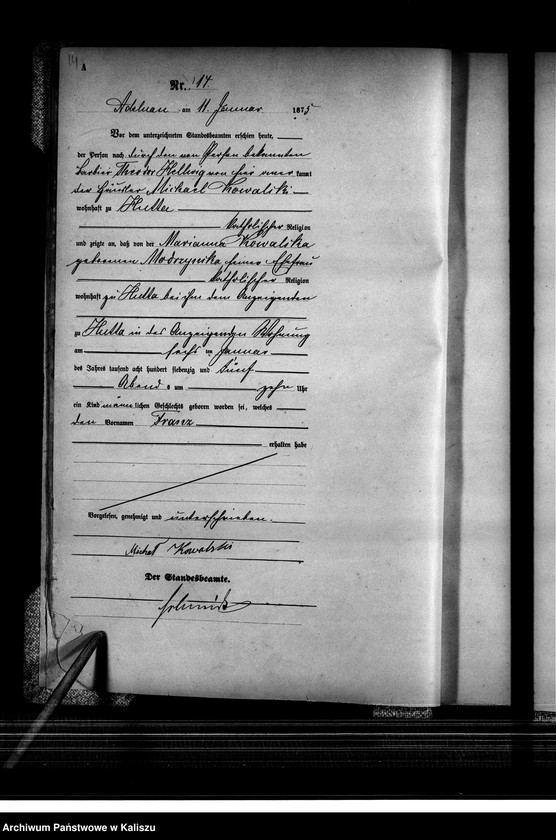 14
A
Nr. 14.
Adelnau am 11. Januar 1875
Vor dem unterzeichneten Standesbeamten erschien heute,
der Person nach durch den von Person bekannten
Barbier Theodor Hellwig von hier aner kannt
der Häusler Michael Kowalski
wohnhaft zu Hutta
katholischer Religion
und zeigte an, daß von der Marianna Kowalska
geborenen seiner Ehefrau
katholischer Religion
wohnhaft zu Hutta bei ihm dem Anzeigenden
zu Hutta in des Anzeigenden Wohnung
am sechs ten Januar
des Jahres tausend acht hundert siebenzig und fünf
Abend s um zehn Uhr
ein Kind männlichen Geschlechts geboren worden sei, welches
den Vornamen Franz
erhalten habe
Vorgelesen, genehmigt und unterschrieben.
Michał Kowalski
Der Standesbeamte.
Archiwum Państwowe w Kaliszu